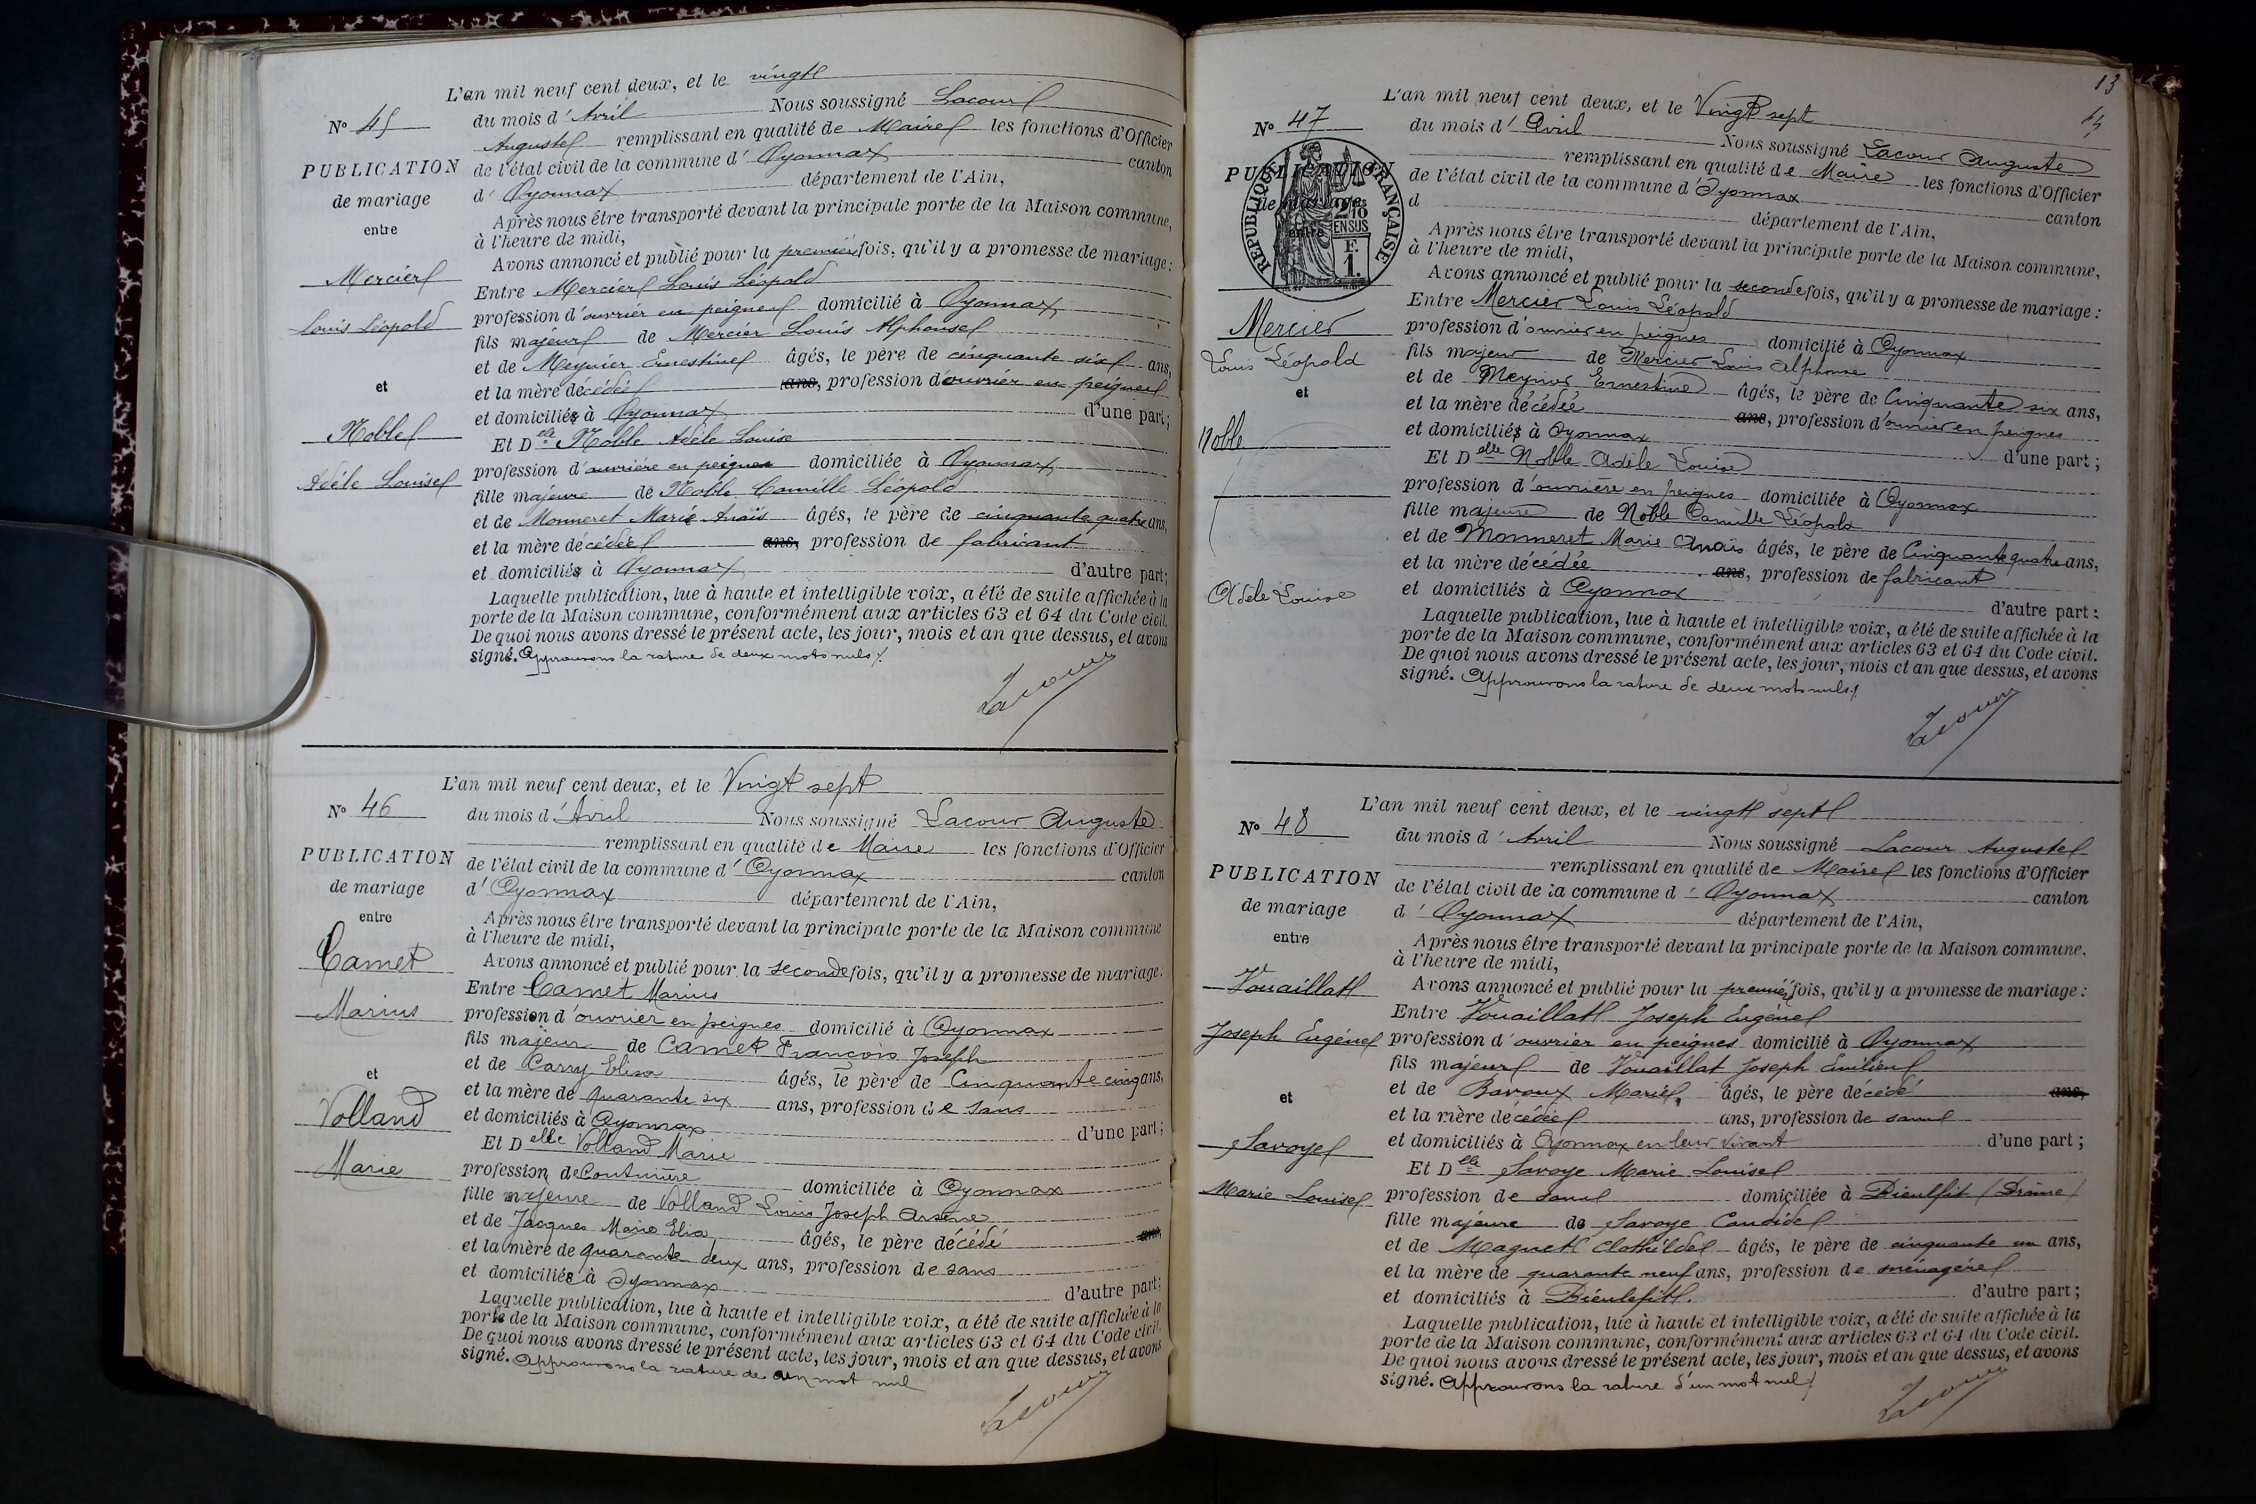 L'an mil neuf cent deux, et le vingt
N° 45
du mois d'Avril Nous soussigné Lacour
Auguste remplissant en qualité de Maire les fonctions d'Officier
PUBLICATION
de mariage
entre
de l'état civil de la commune d'Oyonnax canton
d'Oyonnax département de l'Ain,
Après nous être transporté devant la principale porte de la Maison commune,
à l'heure de midi,
Avons annoncé et publié pour la première fois, qu'il y a promesse de mariage :
Mercier
Louis Léopold
et
Noble
Adèle Louise
Entre Mercier Louis Léopold
profession d'ouvrier en peignes domicilié à Oyonnax
fils majeur de Mercier Louis Alphonse
et de Meynier Ernestine âgés, le père de cinquante six ans,
et la mère décédée ans, profession d'ouvrier en peignes
et domiciliés à Oyonnax d'une part ;
Et Delle Noble Adèle Louise
profession d'ouvrière en peignes domiciliée à Oyonnax
fille majeure de Noble Camille Léopold
et de Monneret Marie Anaïs âgés, le père de cinquante quatre ans,
et la mère décédée ans, profession de fabricant
et domiciliés à Oyonnax d'autre part ;
Laquelle publication, lue à haute et intelligible voix, a été de suite affichée à la
porte de la Maison commune, conformément aux articles 63 et 64 du Code civil.
De quoi nous avons dressé le présent acte, les jour, mois et an que dessus, et avons
signé. Approuvons la rature de deux mots nuls
Lacour
L'an mil neuf cent deux, et le Vingt sept
N° 46
du mois d'Avril Nous soussigné Lacour Auguste
remplissant en qualité de Maire les fonctions d'Officier
PUBLICATION
de mariage
entre
de l'état civil de la commune d'Oyonnax canton
d'Oyonnax département de l'Ain,
Après nous être transporté devant la principale porte de la Maison commune
à l'heure de midi,
Avons annoncé et publié pour la seconde fois, qu'il y a promesse de mariage :
Camet
Marius
et
Volland
Marie
Entre Camet Marius
profession d'ouvrier en peignes domicilié à Oyonnax
fils majeur de Camet François Joseph
et de Carry Elisa âgés, le père de Cinquante cinq ans,
et la mère de quarante six ans, profession de sans
et domiciliés à Oyonnax d'une part ;
Et Delle Volland Marie
profession de Couturière domiciliée à Oyonnax
fille majeure de Volland Louis Joseph Arsène
et de Jacques Marie Elisa âgés, le père décédé ans,
et la mère de quarante deux ans, profession de sans
et domiciliée à Oyonnax d'autre part ;
Laquelle publication, lue à haute et intelligible voix, a été de suite affichée à la
porte de la Maison commune, conformément aux articles 63 et 64 du Code civil.
De quoi nous avons dressé le présent acte, les jour, mois et an que dessus, et avons
signé. Approuvons la rature de un mot nul
Lacour
13
L'an mil neuf cent deux, et le Vingt sept
N° 47
du mois d'Avril Nous soussigné Lacour Auguste
remplissant en qualité de Maire les fonctions d'Officier
PUBLICATION
de mariage
entre
RÉPUBLIQUE FRANÇAISE
2/10
EN SUS
F.
1.
de l'état civil de la commune d'Oyonnax canton
d département de l'Ain,
Après nous être transporté devant la principale porte de la Maison commune,
à l'heure de midi,
Avons annoncé et publié pour la seconde fois, qu'il y a promesse de mariage :
Mercier
Louis Léopold
et
Noble
Adèle Louise
Entre Mercier Louis Léopold
profession d'ouvrier en peignes domicilié à Oyonnax
fils majeur de Mercier Louis Alphonse
et de Meynier Ernestine âgés, le père de Cinquante six ans,
et la mère décédée ans, profession d'ouvrier en peignes
et domiciliés à Oyonnax d'une part ;
Et Delle Noble Adèle Louise
profession d'ouvrière en peignes domiciliée à Oyonnax
fille majeure de Noble Camille Léopold
et de Monneret Marie Anaïs âgés, le père de Cinquante quatre ans,
et la mère décédée ans, profession de fabricant
et domiciliés à Oyonnax d'autre part :
Laquelle publication, lue à haute et intelligible voix, a été de suite affichée à la
porte de la Maison commune, conformément aux articles 63 et 64 du Code civil.
De quoi nous avons dressé le présent acte, les jour, mois et an que dessus, et avons
signé. Approuvons la rature de deux mots nuls
Lacour
L'an mil neuf cent deux, et le vingt sept
N° 48
du mois d'Avril Nous soussigné Lacour Auguste
remplissant en qualité de Maire les fonctions d'Officier
PUBLICATION
de mariage
entre
de l'état civil de la commune d'Oyonnax canton
d'Oyonnax département de l'Ain,
Après nous être transporté devant la principale porte de la Maison commune,
à l'heure de midi,
Avons annoncé et publié pour la première fois, qu'il y a promesse de mariage :
Vouaillat
Joseph Eugène
et
Savoye
Marie Louise
Entre Vouaillat Joseph Eugène
profession d'ouvrier en peignes domicilié à Oyonnax
fils majeur de Vouaillat Joseph Emilien
et de Bavoux Marie, âgés, le père décédé ans,
et la mère décédée ans, profession de sans
et domiciliés à Oyonnax en leur vivant d'une part ;
Et Delle Savoye Marie Louise
profession de sans domiciliée à Dieulefit (Drôme)
fille majeure de Savoye Candide
et de Magnett Clothilde âgés, le père de cinquante un ans,
et la mère de quarante neuf ans, profession de ménagère
et domiciliés à Dieulefit. d'autre part ;
Laquelle publication, lue à haute et intelligible voix, a été de suite affichée à la
porte de la Maison commune, conformément aux articles 63 et 64 du Code civil.
De quoi nous avons dressé le présent acte, les jour, mois et an que dessus, et avons
signé. Approuvons la rature d'un mot nul
Lacour